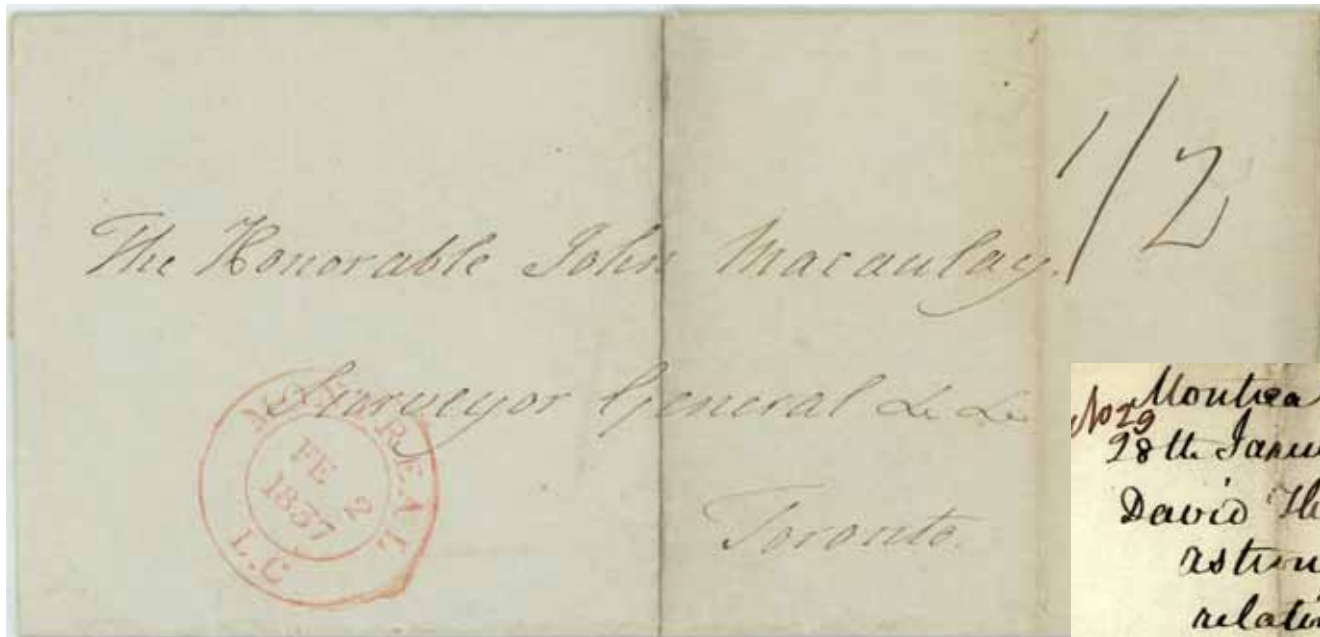 1/2
The Honorable John Macaulay.
Surveyor General &c &c
Toronto.
MONTREAL
FE 2
1837
L.C
No 29
Montrea
28th Janu
David Th
astron
relatin